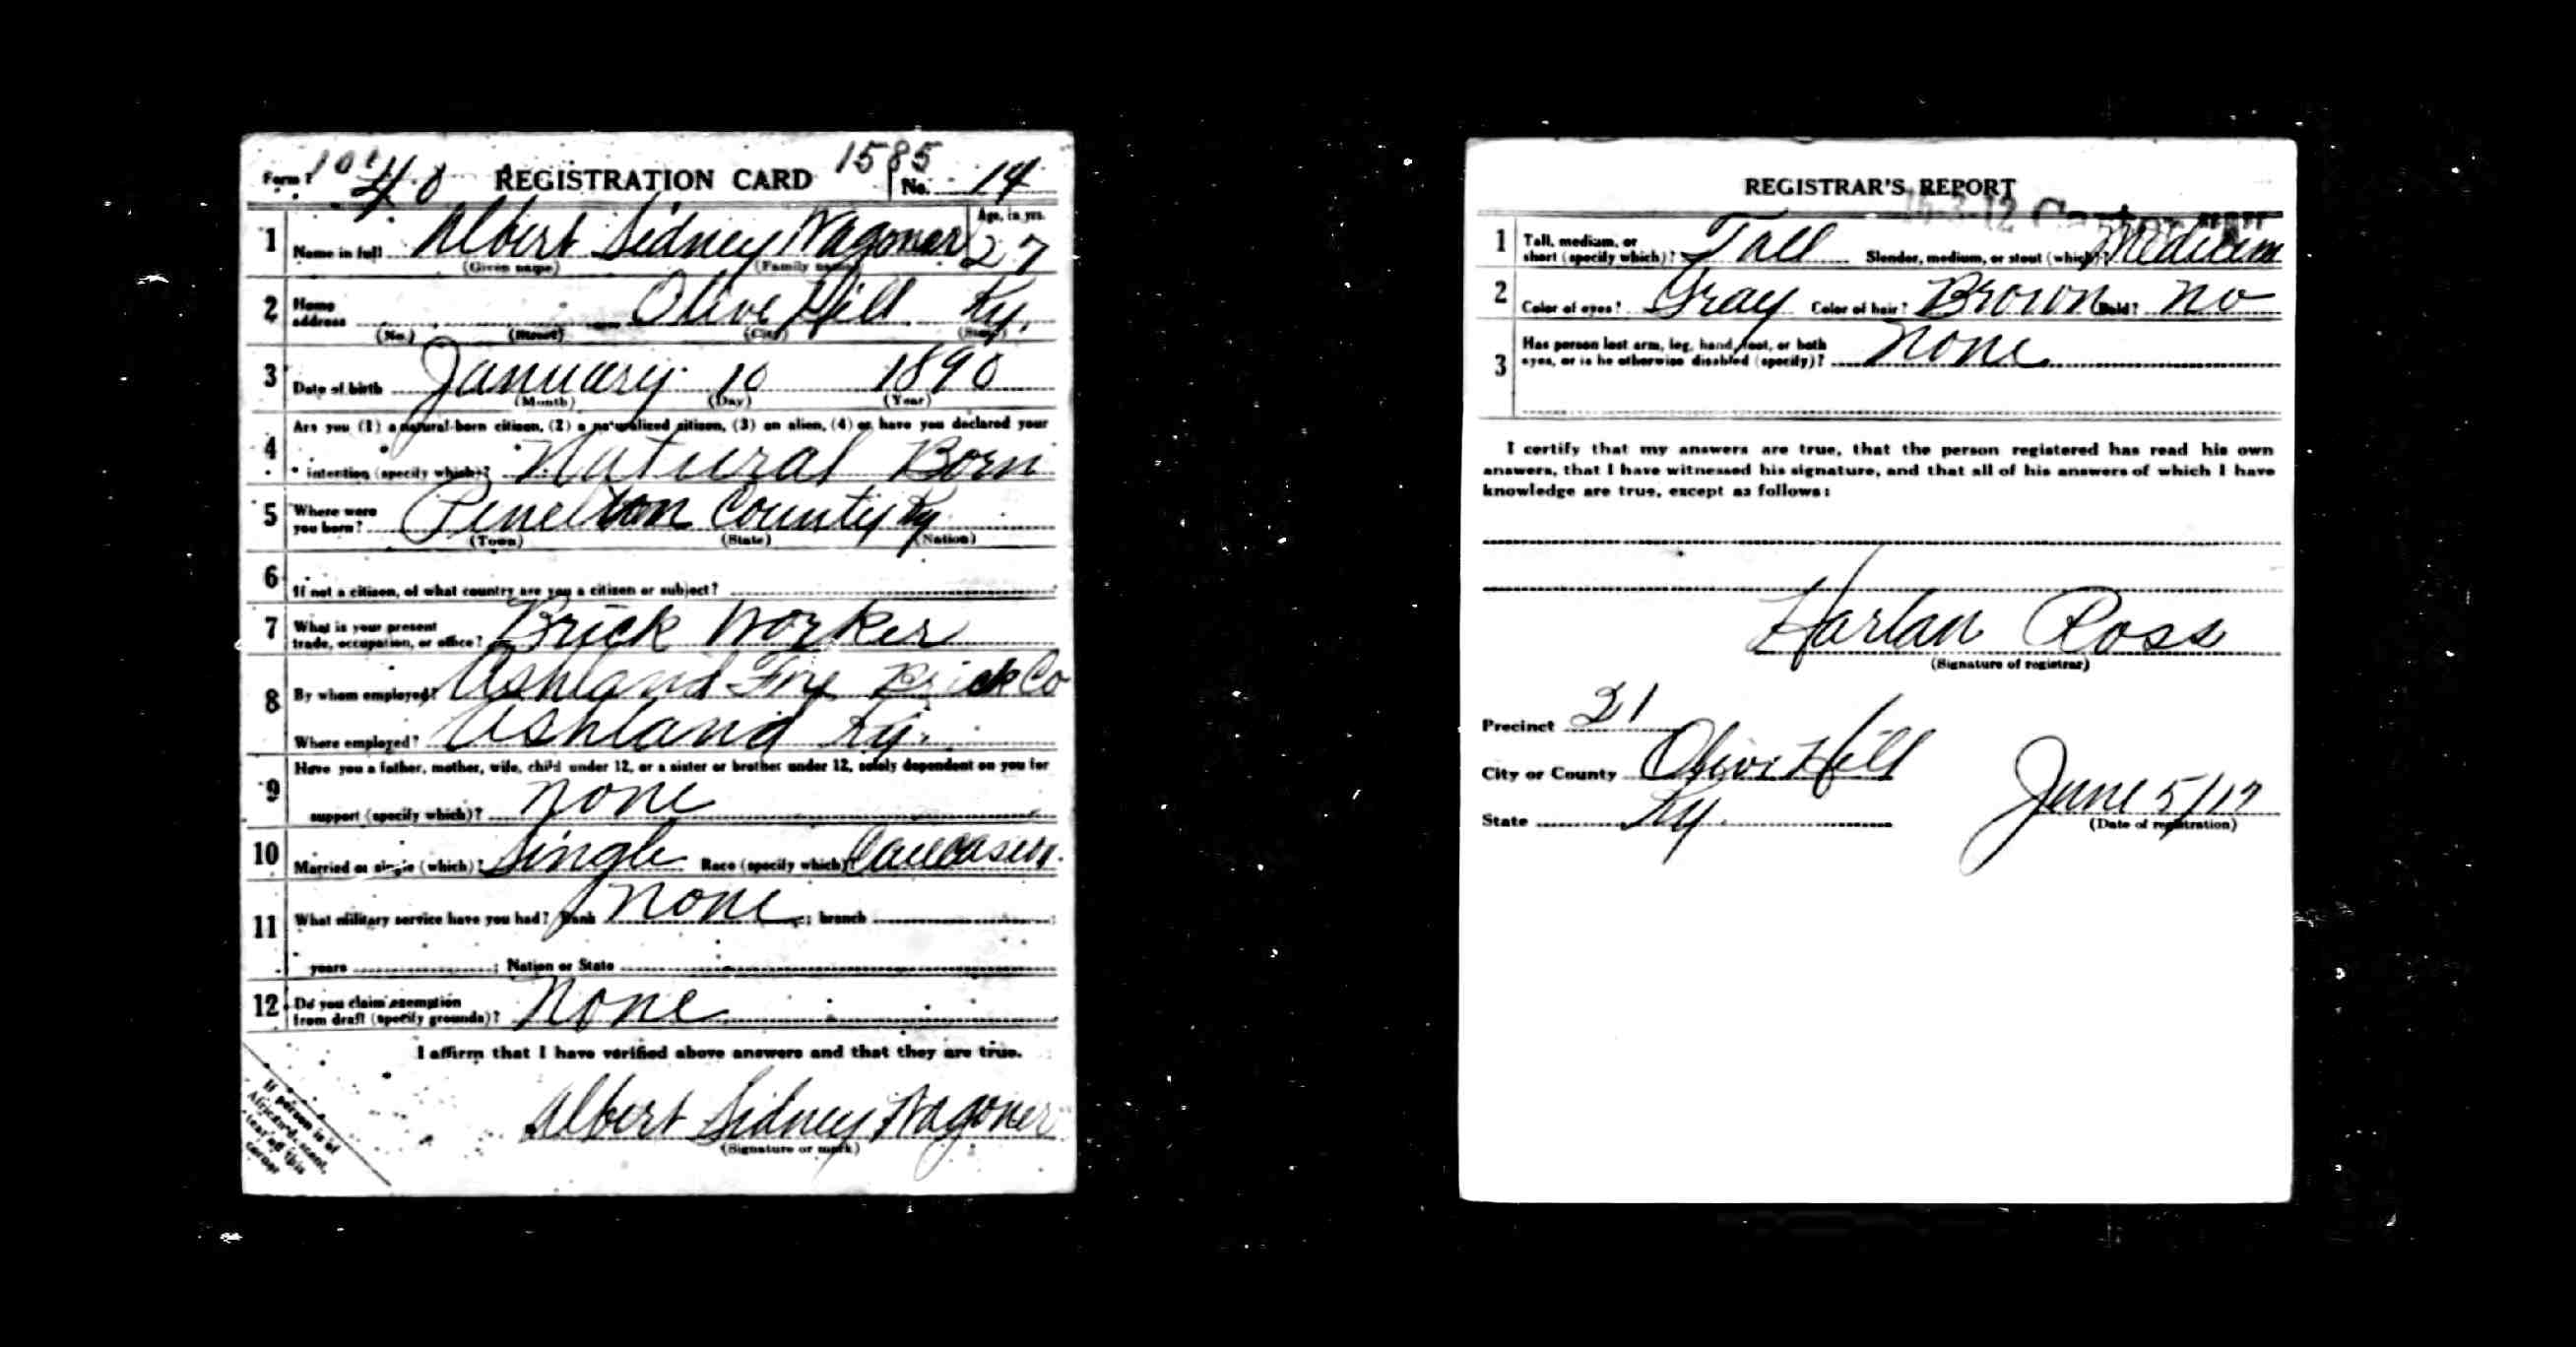 Form 1 1040 REGISTRATION CARD 1585 No. 14
1 Name in full Albert Sidney Wagoner Age, in yrs. 27
(Given name) (Family name)
2 Home address Olive Hill Ky.
(No.) (Street) (City) (State)
3 Date of birth January 10 1890
(Month) (Day) (Year)
4 Are you (1) a natural-born citizen, (2) a naturalized citizen, (3) an alien, (4) or have you declared your
intention (specify which)? Natural Born
5 Where were you born? Penelton County Ky
(Town) (State) (Nation)
6 If not a citizen, of what country are you a citizen or subject?
7 What is your present trade, occupation, or office? Brick Worker
8 By whom employed? Ashland Fire Brick Co
Where employed? Ashland Ky.
9 Have you a father, mother, wife, child under 12, or a sister or brother under 12, solely dependent on you for
support (specify which)? None
10 Married or single (which)? Single Race (specify which)? Caucasian
11 What military service have you had? Rank None ; branch
years ; Nation or State
12 Do you claim exemption from draft (specify grounds)? None
I affirm that I have verified above answers and that they are true.
Albert Sidney Wagoner
(Signature or mark)
If person is of
African descent,
tear off this
corner
REGISTRAR'S REPORT
1 Tall, medium, or short (specify which)? Tall Slender, medium, or stout (which)? Medium
2 Color of eyes? Gray Color of hair? Brown Bald? No
3 Has person lost arm, leg, hand, foot, or both
eyes, or is he otherwise disabled (specify)? None
I certify that my answers are true, that the person registered has read his own
answers, that I have witnessed his signature, and that all of his answers of which I have
knowledge are true, except as follows:
Harlan Ross
(Signature of registrar)
Precinct 21
City or County Olive Hill
State Ky. June 5/17
(Date of registration)